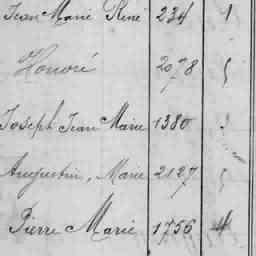 Jean Marie René 234 1
Honoré 2078 5
Joseph Jean Marie 1380
Augustin, Marie 2127 5
Pierre Marie 1756 4